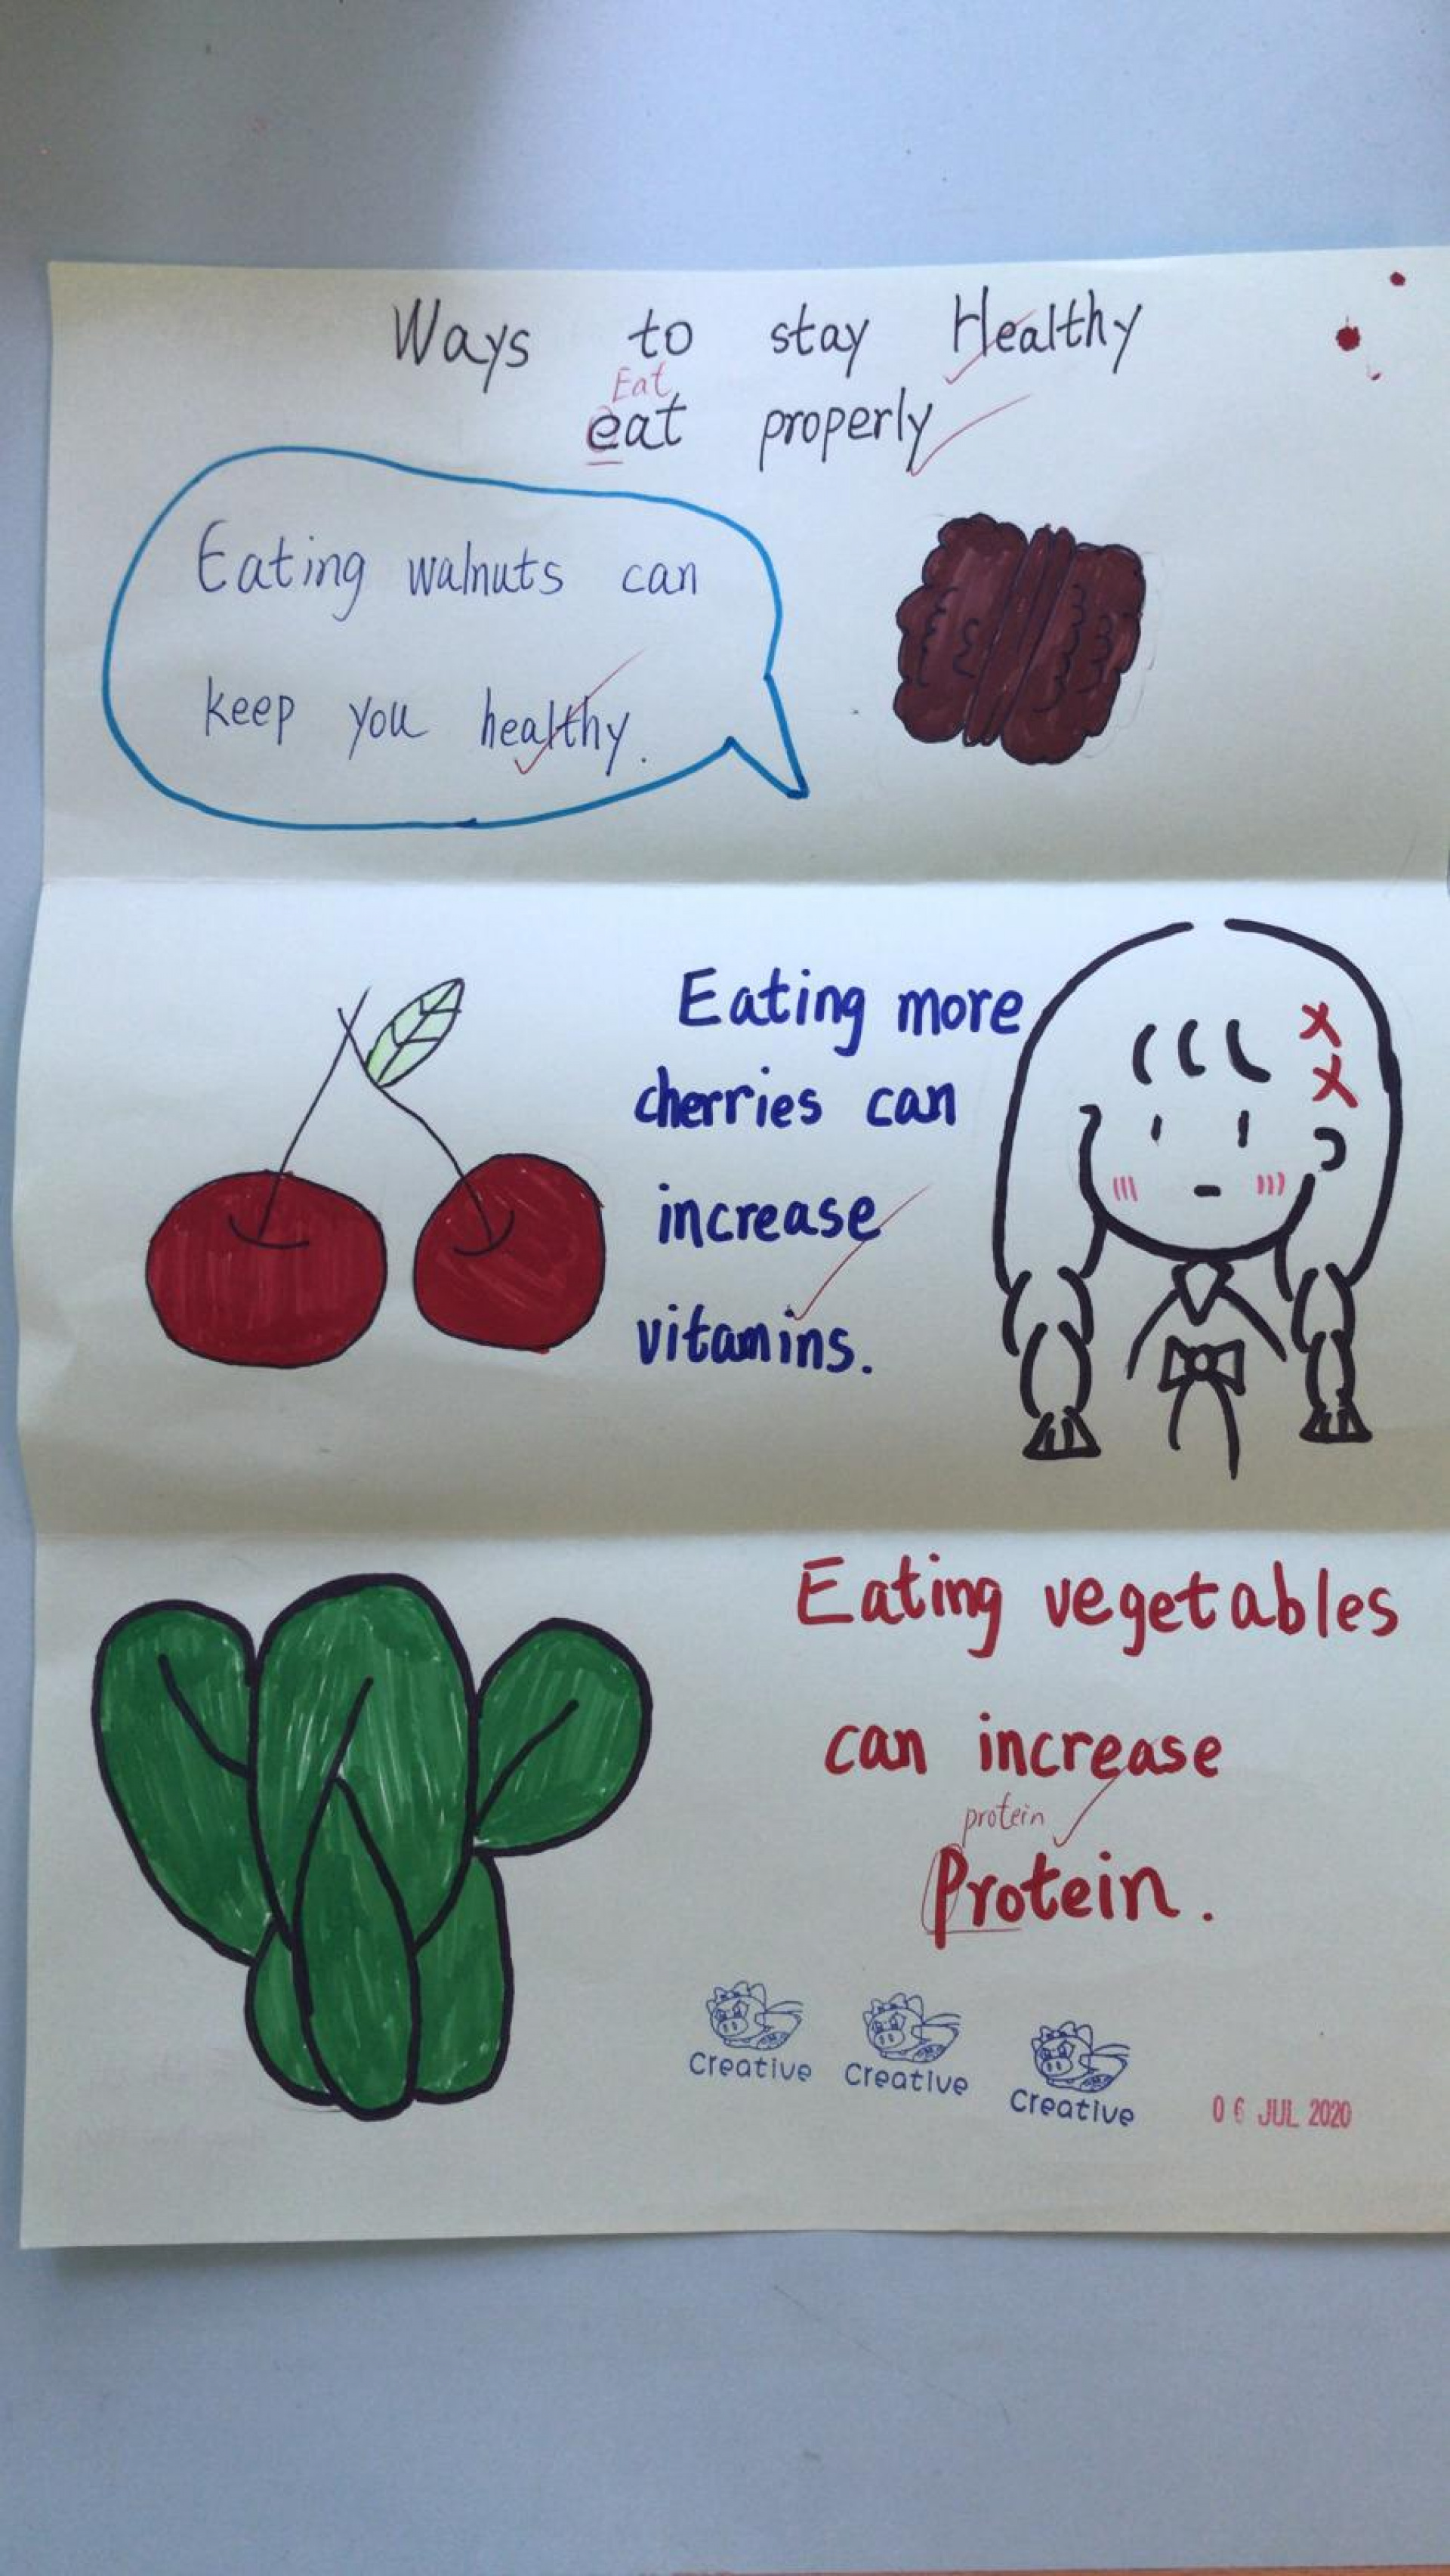 Ways to stay Healthy
Eat
eat properly
Eating walnuts can
keep you healthy.
Eating more
cherries can
increase
vitamins.
Eating vegetables
can increase
protein
Protein.
Creative Creative Creative
06 JUL 2020